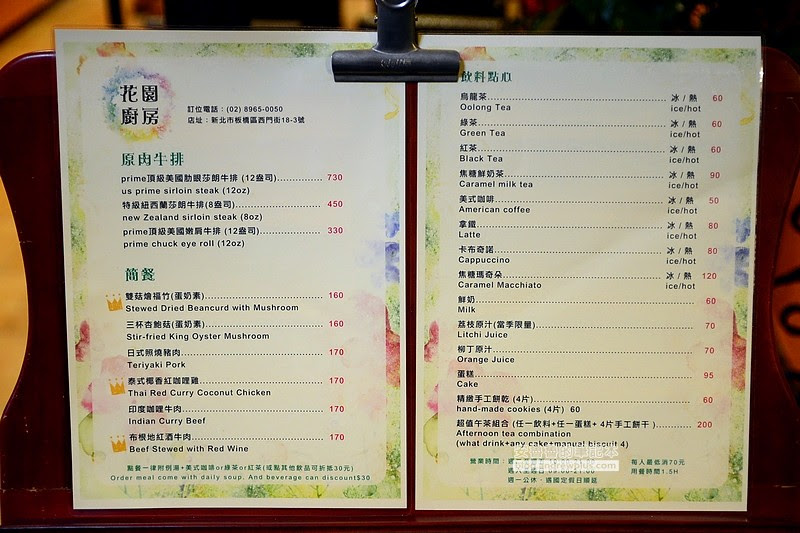 花園
廚房
訂位電話：(02) 8965-0050
店址：新北市板橋區西門街18-3號
原肉牛排
prime頂級美國肋眼莎朗牛排 (12盎司)................ 730
us prime sirloin steak (12oz)
特級紐西蘭莎朗牛排(8盎司)................ 450
new Zealand sirloin steak (8oz)
prime頂級美國嫩肩牛排 (12盎司)................ 330
prime chuck eye roll (12oz)
簡餐
雙菇燴福竹(蛋奶素)................ 160
Stewed Dried Beancurd with Mushroom
三杯杏鮑菇(蛋奶素)................ 160
Stir-fried King Oyster Mushroom
日式照燒豬肉................ 170
Teriyaki Pork
泰式椰香紅咖哩雞................ 170
Thai Red Curry Coconut Chicken
印度咖哩牛肉................ 170
Indian Curry Beef
布根地紅酒牛肉................ 170
Beef Stewed with Red Wine
點餐一律附例湯+美式咖啡or綠茶or紅茶(或點其他飲品可折抵30元)
Order meal come with daily soup. And beverage can discount$30
飲料點心
烏龍茶................ 冰 / 熱 60
Oolong Tea ice/hot
綠茶................ 冰 / 熱 60
Green Tea ice/hot
紅茶................ 冰 / 熱 60
Black Tea ice/hot
焦糖鮮奶茶................ 冰 / 熱 90
Caramel milk tea ice/hot
美式咖啡................ 冰 / 熱 50
American coffee ice/hot
拿鐵................ 冰 / 熱 80
Latte ice/hot
卡布奇諾................ 冰 / 熱 80
Cappuccino ice/hot
焦糖瑪奇朵................ 冰 / 熱 120
Caramel Macchiato ice/hot
鮮奶................ 60
Milk
荔枝原汁(當季限量)................ 70
Litchi Juice
柳丁原汁................ 70
Orange Juice
蛋糕................ 95
Cake
精緻手工餅乾 (4片)................ 60
hand-made cookies (4片) 60
超值午茶組合 (任一飲料+任一蛋糕+ 4片手工餅干 )................ 200
Afternoon tea combination
(what drink+any cake+manual biscuit 4)
營業時間：週 每人最低消70元
用餐時間1.5H
週一公休，遇國定假日順延